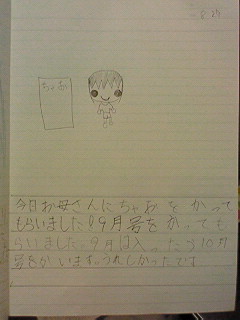 8.25
ちゃお
今日お母さんにちゃおをかって
もらいました!9月号をかっても
らいました。9月に入ったら10月
号をかいます。うれしかったです